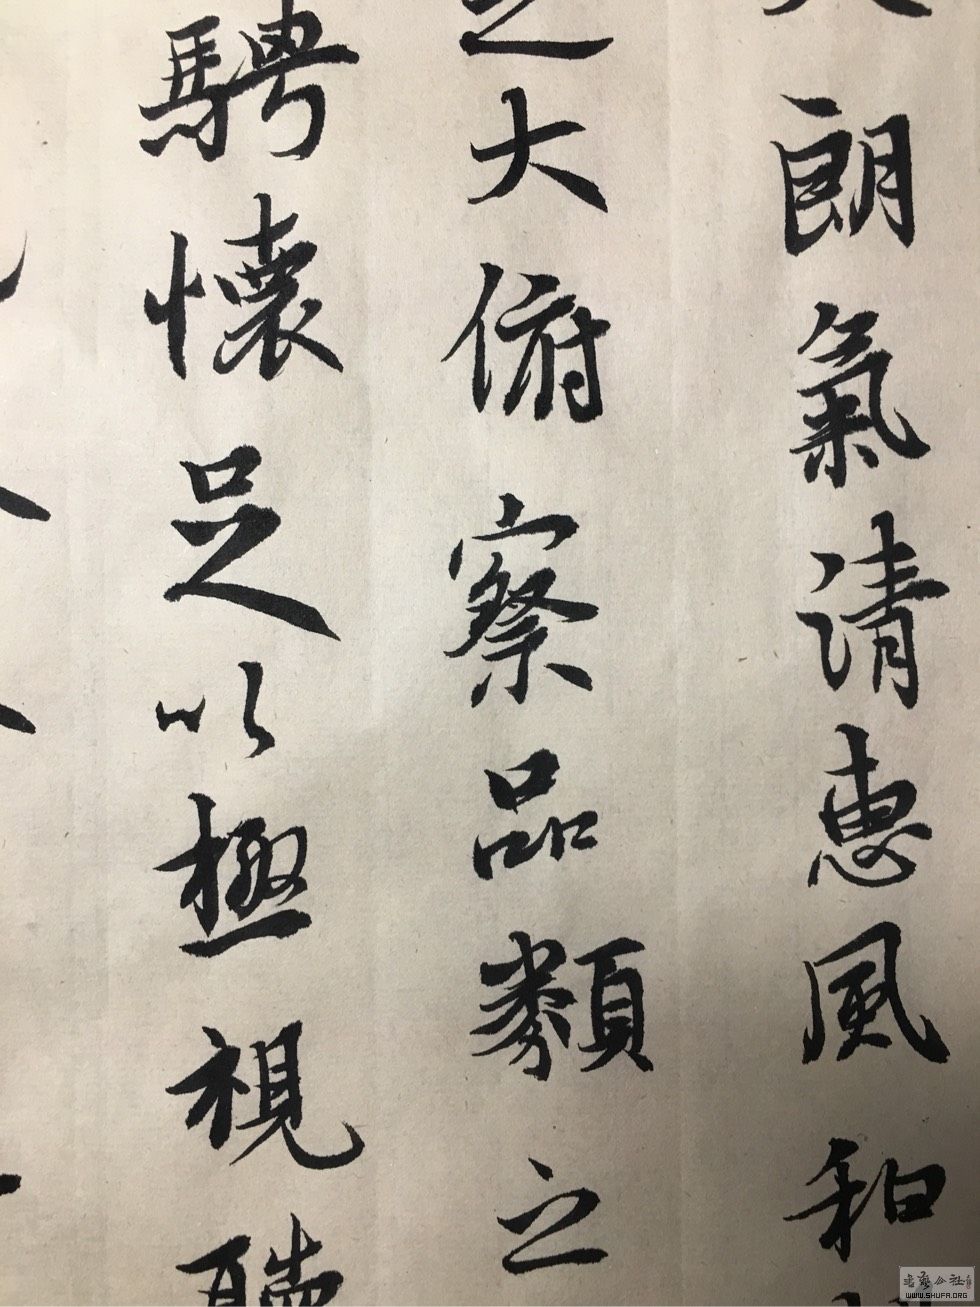 朗氣清惠風和
之大俯察品類之
騁懷足以極視聽
WWW.SHUFA.ORG